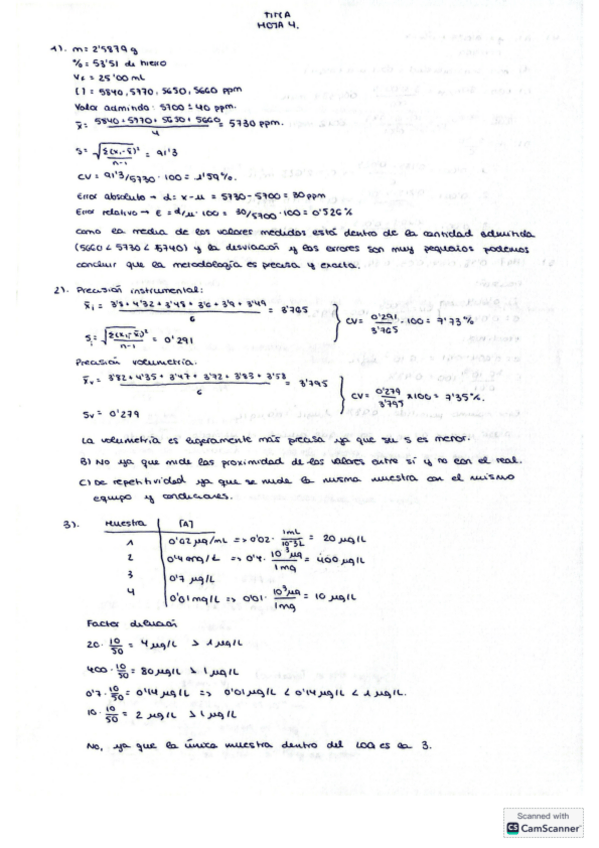 TIPLA
HOJA 4.
1). m= 2'5879 g
% = 53'51 de hierro
Vf = 25'00 mL
[ ] = 5840, 5770, 5650, 5660 ppm
Valor admindo: 5700 ± 40 ppm.
x̄ = (5840+5770+5650+5660)/4 = 5730 ppm.
S = √(Σ(xᵢ-x̄)²/(n-1)) = 91'3
CV = 91'3/5730 · 100 = 1'59%.
Error absoluto → d = x-μ = 5730-5700 = 30 ppm
Error relativo → ε = d/μ · 100 = 30/5700 · 100 = 0'526%
Como la media de los valores medidos está dentro de la cantidad adminda
(5660 < 5730 < 5740) y la desviación y los errores son muy pequeños podemos
concluir que la metodología es precisa y exacta.
2). Precisión instrumental:
x̄ᵢ = (3'8 + 4'32 + 3'48 + 3'6 + 3'9 + 3'49)/6 = 3'765
Sᵢ = √(Σ(xᵢ-x̄)²/(n-1)) = 0'291
CV = 0'291/3'765 · 100 = 7'73%
Precisión volumetría:
x̄ᵥ = (3'82 + 4'35 + 3'47 + 3'72 + 3'83 + 3'58)/6 = 3'795
Sv = 0'279
CV = 0'279/3'795 x100 = 7'35%.
La volumetría es ligeramente más precisa ya que su s es menor.
B) No ya que mide las proximidad de los valores entre sí y no con el real.
C) De repetitividad ya que se mide la misma muestra con el mismo
equipo y condiciones.
3). Muestra [A]
1 0'02 μg/mL => 0'02 · 1mL/10⁻³L = 20 μg/L
2 0'4 mg/L => 0'4 · 10³μg/1mg = 400 μg/L
3 0'7 μg/L
4 0'01 mg/L => 0'01 · 10³μg/1mg = 10 μg/L
Factor dilución
20 · 10/50 = 4 μg/L > 1 μg/L
400 · 10/50 = 80 μg/L > 1 μg/L
0'7 · 10/50 = 0'14 μg/L => 0'01 μg/L < 0'14 μg/L < 1 μg/L.
10 · 10/50 = 2 μg/L > 1 μg/L
No, ya que la única muestra dentro del LOQ es la 3.
Scanned with
CS CamScanner